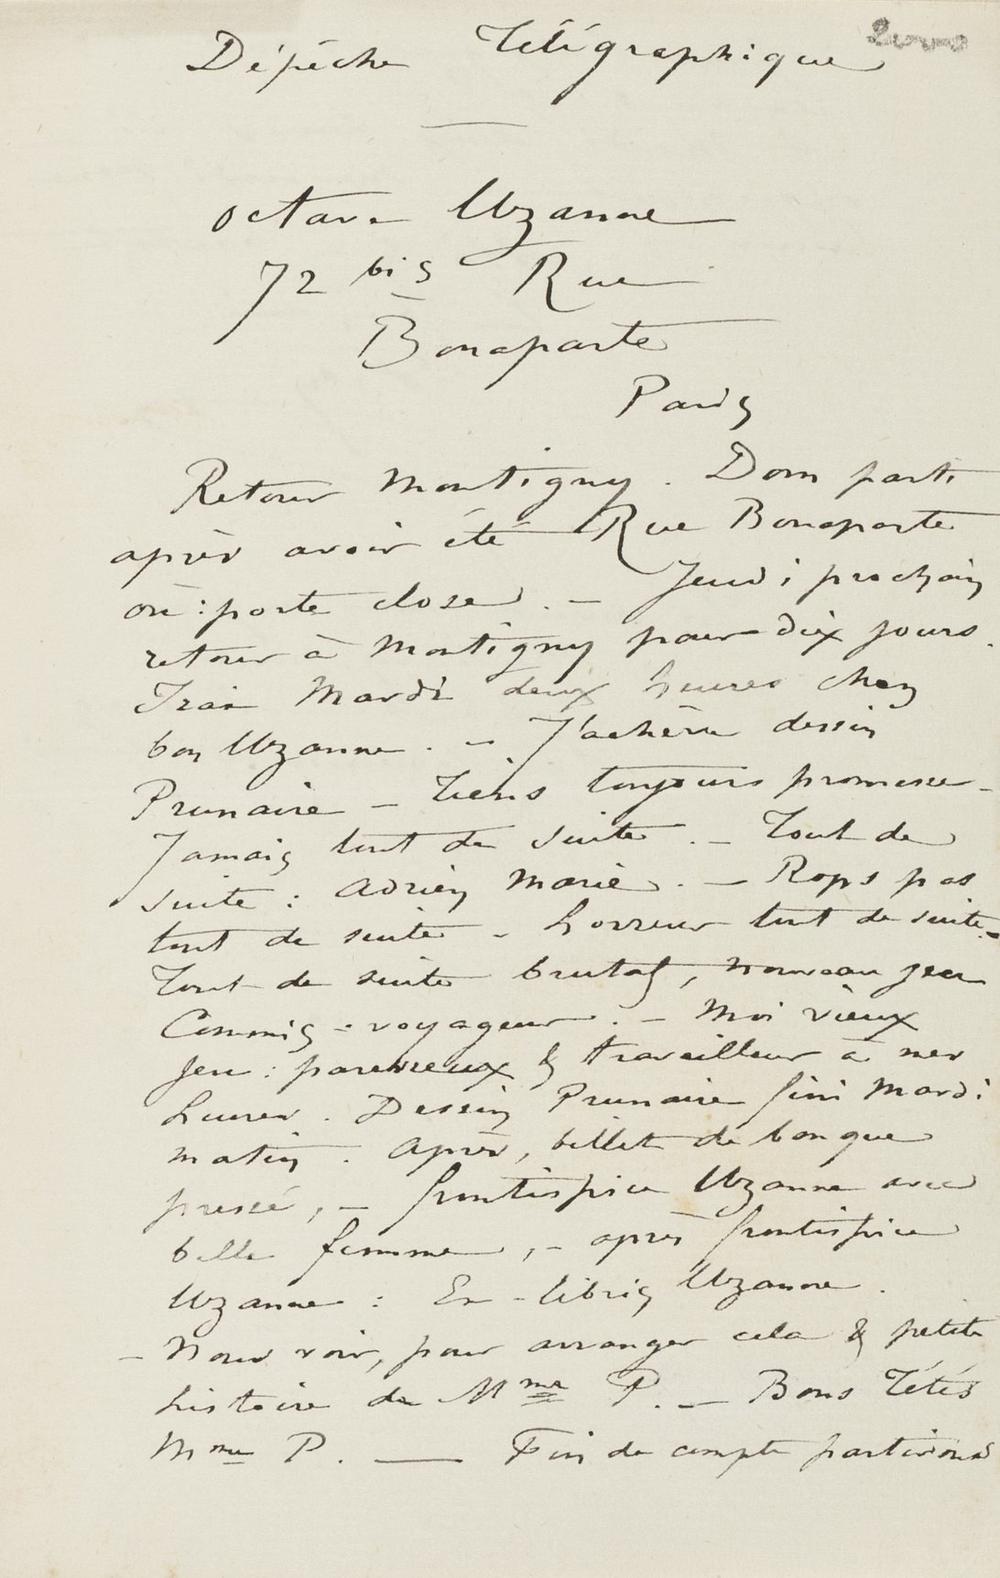 Dépêche Télégraphique
Octave Uzanne
72 bis Rue
Bonaparte
Paris
Retour Montigny. Dom parti
après avoir été Rue Bonaparte
où : porte close. – Jeudi prochain
retour à Montigny pour dix jours.
Irai Mardi deux heures chez
bon Uzanne. – J'achève dessin
Prunaire – Tiens toujours promesse –
Jamais tout de suite. – Tout de
suite : Adrien Marie. – Rops pas
tout de suite – horreur tout de suite. –
Tout de suite brutal, nouveau jeu
Commis-voyageur. – Moi vieux
jeu : paresseux & travailleur à mes
heures. Dessin Prunaire fini Mardi
matin. Après, billet de banque
pressé, – frontispice Uzanne avec
belle femme, – après frontispice
Uzanne : Ex-libris Uzanne.
– Nous voir, pour arranger cela & petite
histoire de Mme P. – Bons Tétés
Mme P. — Fin de compte partirons